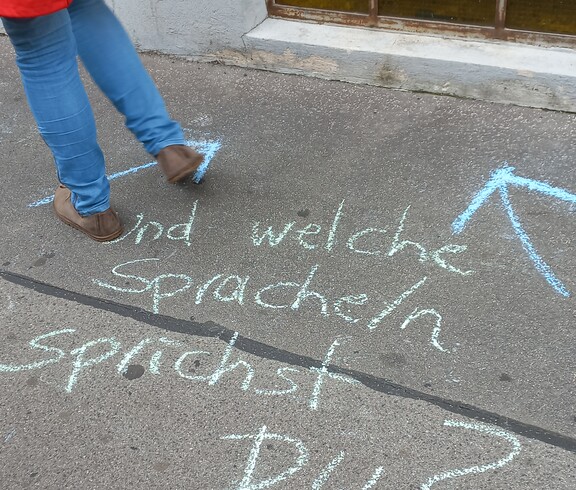 und welche
Sprache/n
sprichst
Du?